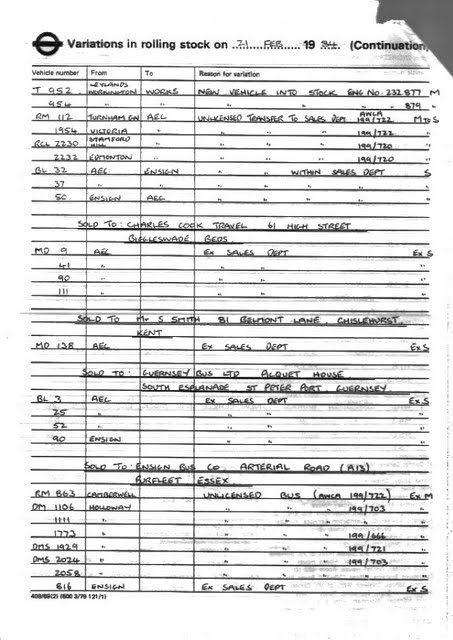 Variations in rolling stock on 21 FEB 19 84. (Continuation)
Vehicle number From To Reason for variation
T 952 LEYLANDS WORKINGTON WORKS NEW VEHICLE INTO STOCK ENG NO. 232 877 M
954 " " " " " 879 "
RM 112 TURNHAM GN AEC UNLICENSED TRANSFER TO SALES DEPT AWCA 199/722 M TO S
1954 VICTORIA " " " " 199/722 "
RCL 2230 STAMFORD HILL " " " " 199/720 "
2232 EDMONTON " " " " 199/720 "
BL 32 AEC ENSIGN " " WITHIN SALES DEPT S
37 " " " " " " "
50 ENSIGN AEC " " " " "
SOLD TO: CHARLES COOK TRAVEL 61 HIGH STREET
BIGGLESWADE BEDS.
MD 9 AEC EX SALES DEPT EX S
41 " " " "
90 " " " "
111 " " " "
SOLD TO Mr S SMITH 81 BELMONT LANE, CHISLEHURST,
KENT
MD 138 AEC EX SALES DEPT EX S
SOLD TO: GUERNSEY BUS LTD PICQUET HOUSE
SOUTH ESPLANADE ST PETER PORT, GUERNSEY
BL 3 AEC EX SALES DEPT EX S
25 " " " "
52 " " " "
90 ENSIGN " " "
SOLD TO: ENSIGN BUS CO. ARTERIAL ROAD (A13)
PURFLEET ESSEX
RM 863 CAMBERWELL UNLICENSED BUS (AWCA 199/722) EX M
DM 1106 HOLLOWAY " " " 199/703 "
1111 " " " " " "
1773 " " " " 199/666 "
DMS 1929 " " " " 199/721 "
DMS 2024 " " " " 199/703 "
2058 " " " " " "
816 ENSIGN EX SALES DEPT EX S
409/69(2) (500 3/79 121/1)